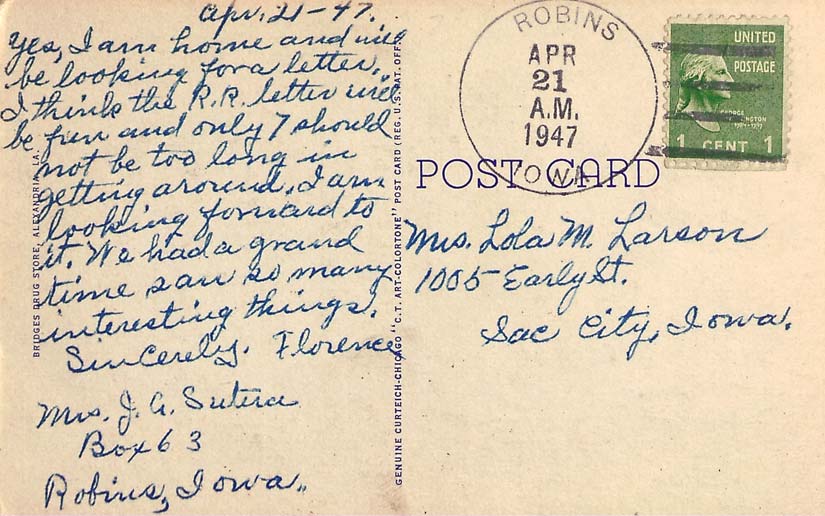 Apr. 21-47.
Yes, I am home and will
be looking for a letter.
I think the R.R. letter will
be fun and only 7 should
not be too long in
getting around. I am
looking forward to
it. We had a grand
time saw so many
interesting things.
Sincerely. Florence
Mrs. J. A. Sutera
Box 63
Robins, Iowa.
BRIDGES DRUG STORE, ALEXANDRIA, LA.
GENUINE CURTEICH-CHICAGO "C.T. ART-COLORTONE" POST CARD (REG. U.S. PAT. OFF.)
ROBINS
APR
21
A.M.
1947
IOWA
UNITED
POSTAGE
GEORGE
1 CENT 1
POST CARD
Mrs. Lola M. Larson
1005 Early St.
Sac City, Iowa.